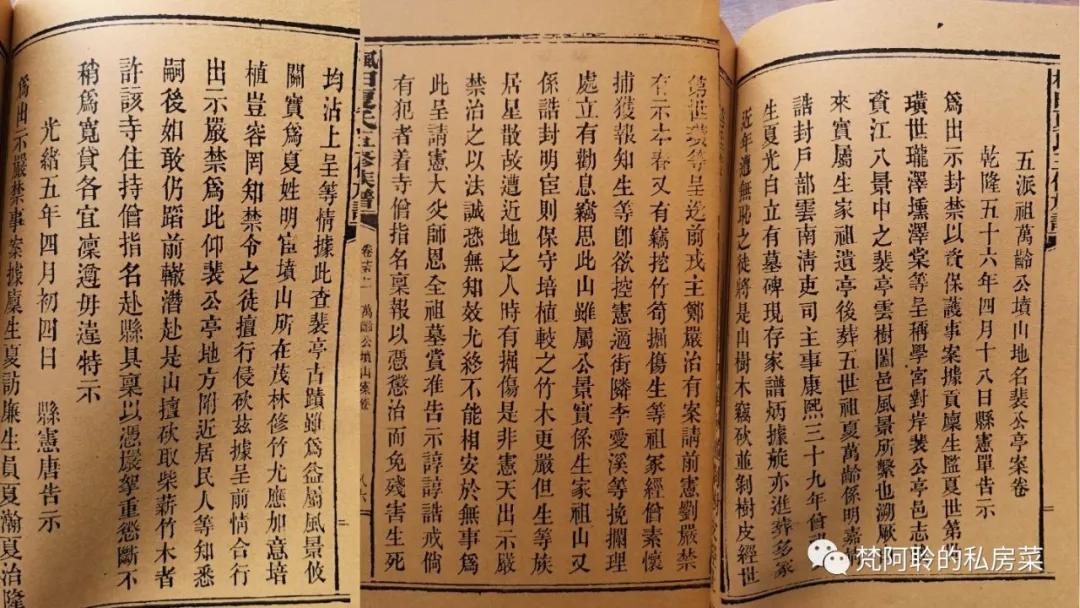 五派祖萬齡公墳山地名裴公亭案卷
乾隆五十六年四月十八日縣憲單告示
爲出示封禁以資保護事案據貢廩生監夏世第
璜世瓏澤壎澤棠等呈稱學宮對岸裴公亭邑志
資江八景中之裴亭雲樹闔邑風景所繫也溯厥
來實屬生家祖遺亭後葬五世祖夏萬齡係明嘉
誥封戶部雲南清吏司主事康熙三十九年曾
生夏光白立有墓碑現存家譜炳據旋亦進葬多冢
近年遭無恥之徒將是山樹木竊砍並剝樹皮經世
第世璜等呈迄前戎主鄭嚴治有案請前憲劉嚴禁
在示本春又有竊挖竹筍掘傷生等祖冢經曾素懷
捕獲報知生等卽欲控憲適街隣李愛溪等挽攔理
處立有勸息竊思此山雖屬公景實係生家祖山又
係誥封明宦則保守培植較之竹木更嚴但生等族
居星散故遭近地之人時有掘傷是非憲天出示嚴
禁治之以法誠恐無知效尤終不能相安於無事爲
此呈請憲大父師恩全祖墓賞准告示諄諄誥戒倘
有犯者着寺僧指名稟報以憑懲治而免殘害生死
卷
萬齡公墳山案卷
均沾上呈等情據此查裴亭古蹟雖爲益屬風景攸
關實爲夏姓明宦墳山所在茂林修竹尤應加意培
植豈容罔知禁令之徒擅行侵砍茲據呈前情合行
出示嚴禁爲此仰裴公亭地方附近居民人等知悉
嗣後如敢仍蹈前轍潛赴是山擅砍取柴薪竹木者
許該寺住持僧指名赴縣具稟以憑嚴拏重懲斷不
稍爲寬貸各宜凜遵毋違特示
光緒五年四月初四日 縣憲唐告示
爲出示嚴禁事案據廩生夏訪廉生員夏瀚夏治隆
梵阿聆的私房菜